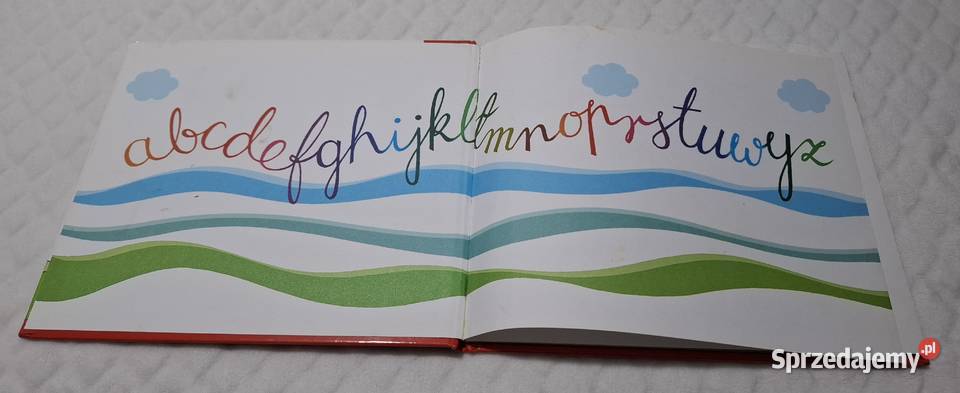 abcdefghijklłmnoprstuwyz
Sprzedajemy.pl